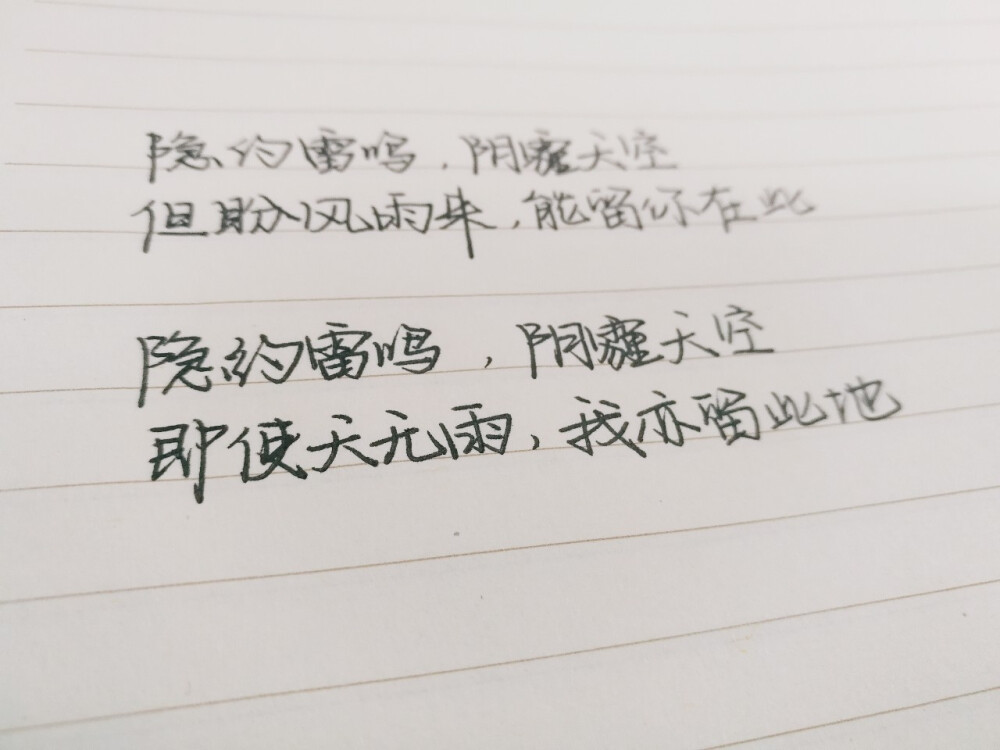 隐约雷鸣,阴霾天空
但盼风雨来,能留你在此
隐约雷鸣,阴霾天空
即使天无雨,我亦留此地